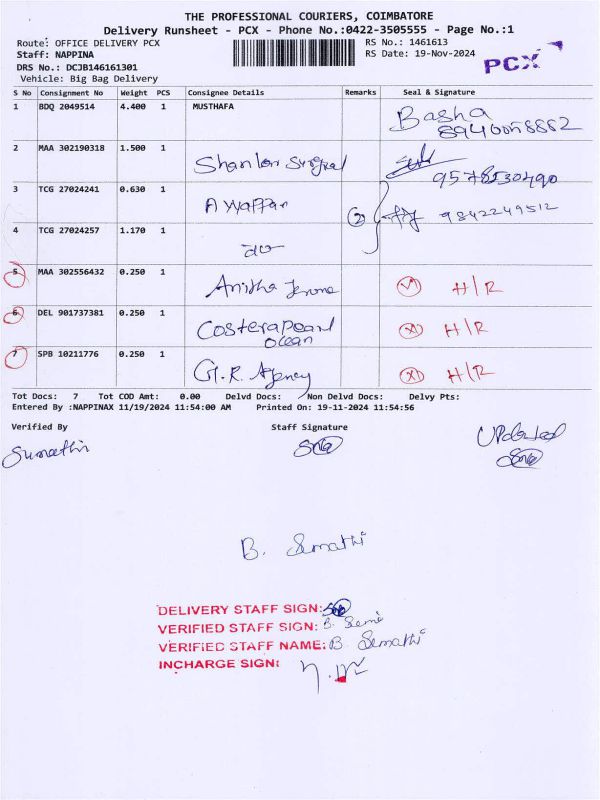 THE PROFESSIONAL COURIERS, COIMBATORE
Delivery Runsheet - PCX - Phone No.:0422-3505555 - Page No.:1
Route: OFFICE DELIVERY PCX RS No.: 1461613
Staff: NAPPINA RS Date: 19-Nov-2024
DRS No.: DCJB146161301 PCX
Vehicle: Big Bag Delivery
S No Consignment No Weight PCS Consignee Details Remarks Seal & Signature
1 BDQ 2049514 4.400 1 MUSTHAFA Basha
2 MAA 302190318 1.500 1
9578530490
3 TCG 27024241 0.630 1 2 9842249512
4 TCG 27024257 1.170 1 do
5 MAA 302556432 0.250 1 Anitha Jerome H/R
6 DEL 901737381 0.250 1 Costerapearl ocean X H/R
7 SPB 10211776 0.250 1 G.R. Agency X H/R
Tot Docs: 7 Tot COD Amt: 0.00 Delvd Docs: Non Delvd Docs: Delvy Pts:
Entered By :NAPPINAX 11/19/2024 11:54:00 AM Printed On: 19-11-2024 11:54:56
Verified By Staff Signature
Sumathi Updated
B. Sumathi
DELIVERY STAFF SIGN:
VERIFIED STAFF SIGN: B.
VERIFIED STAFF NAME: B. Sumathi
INCHARGE SIGN: